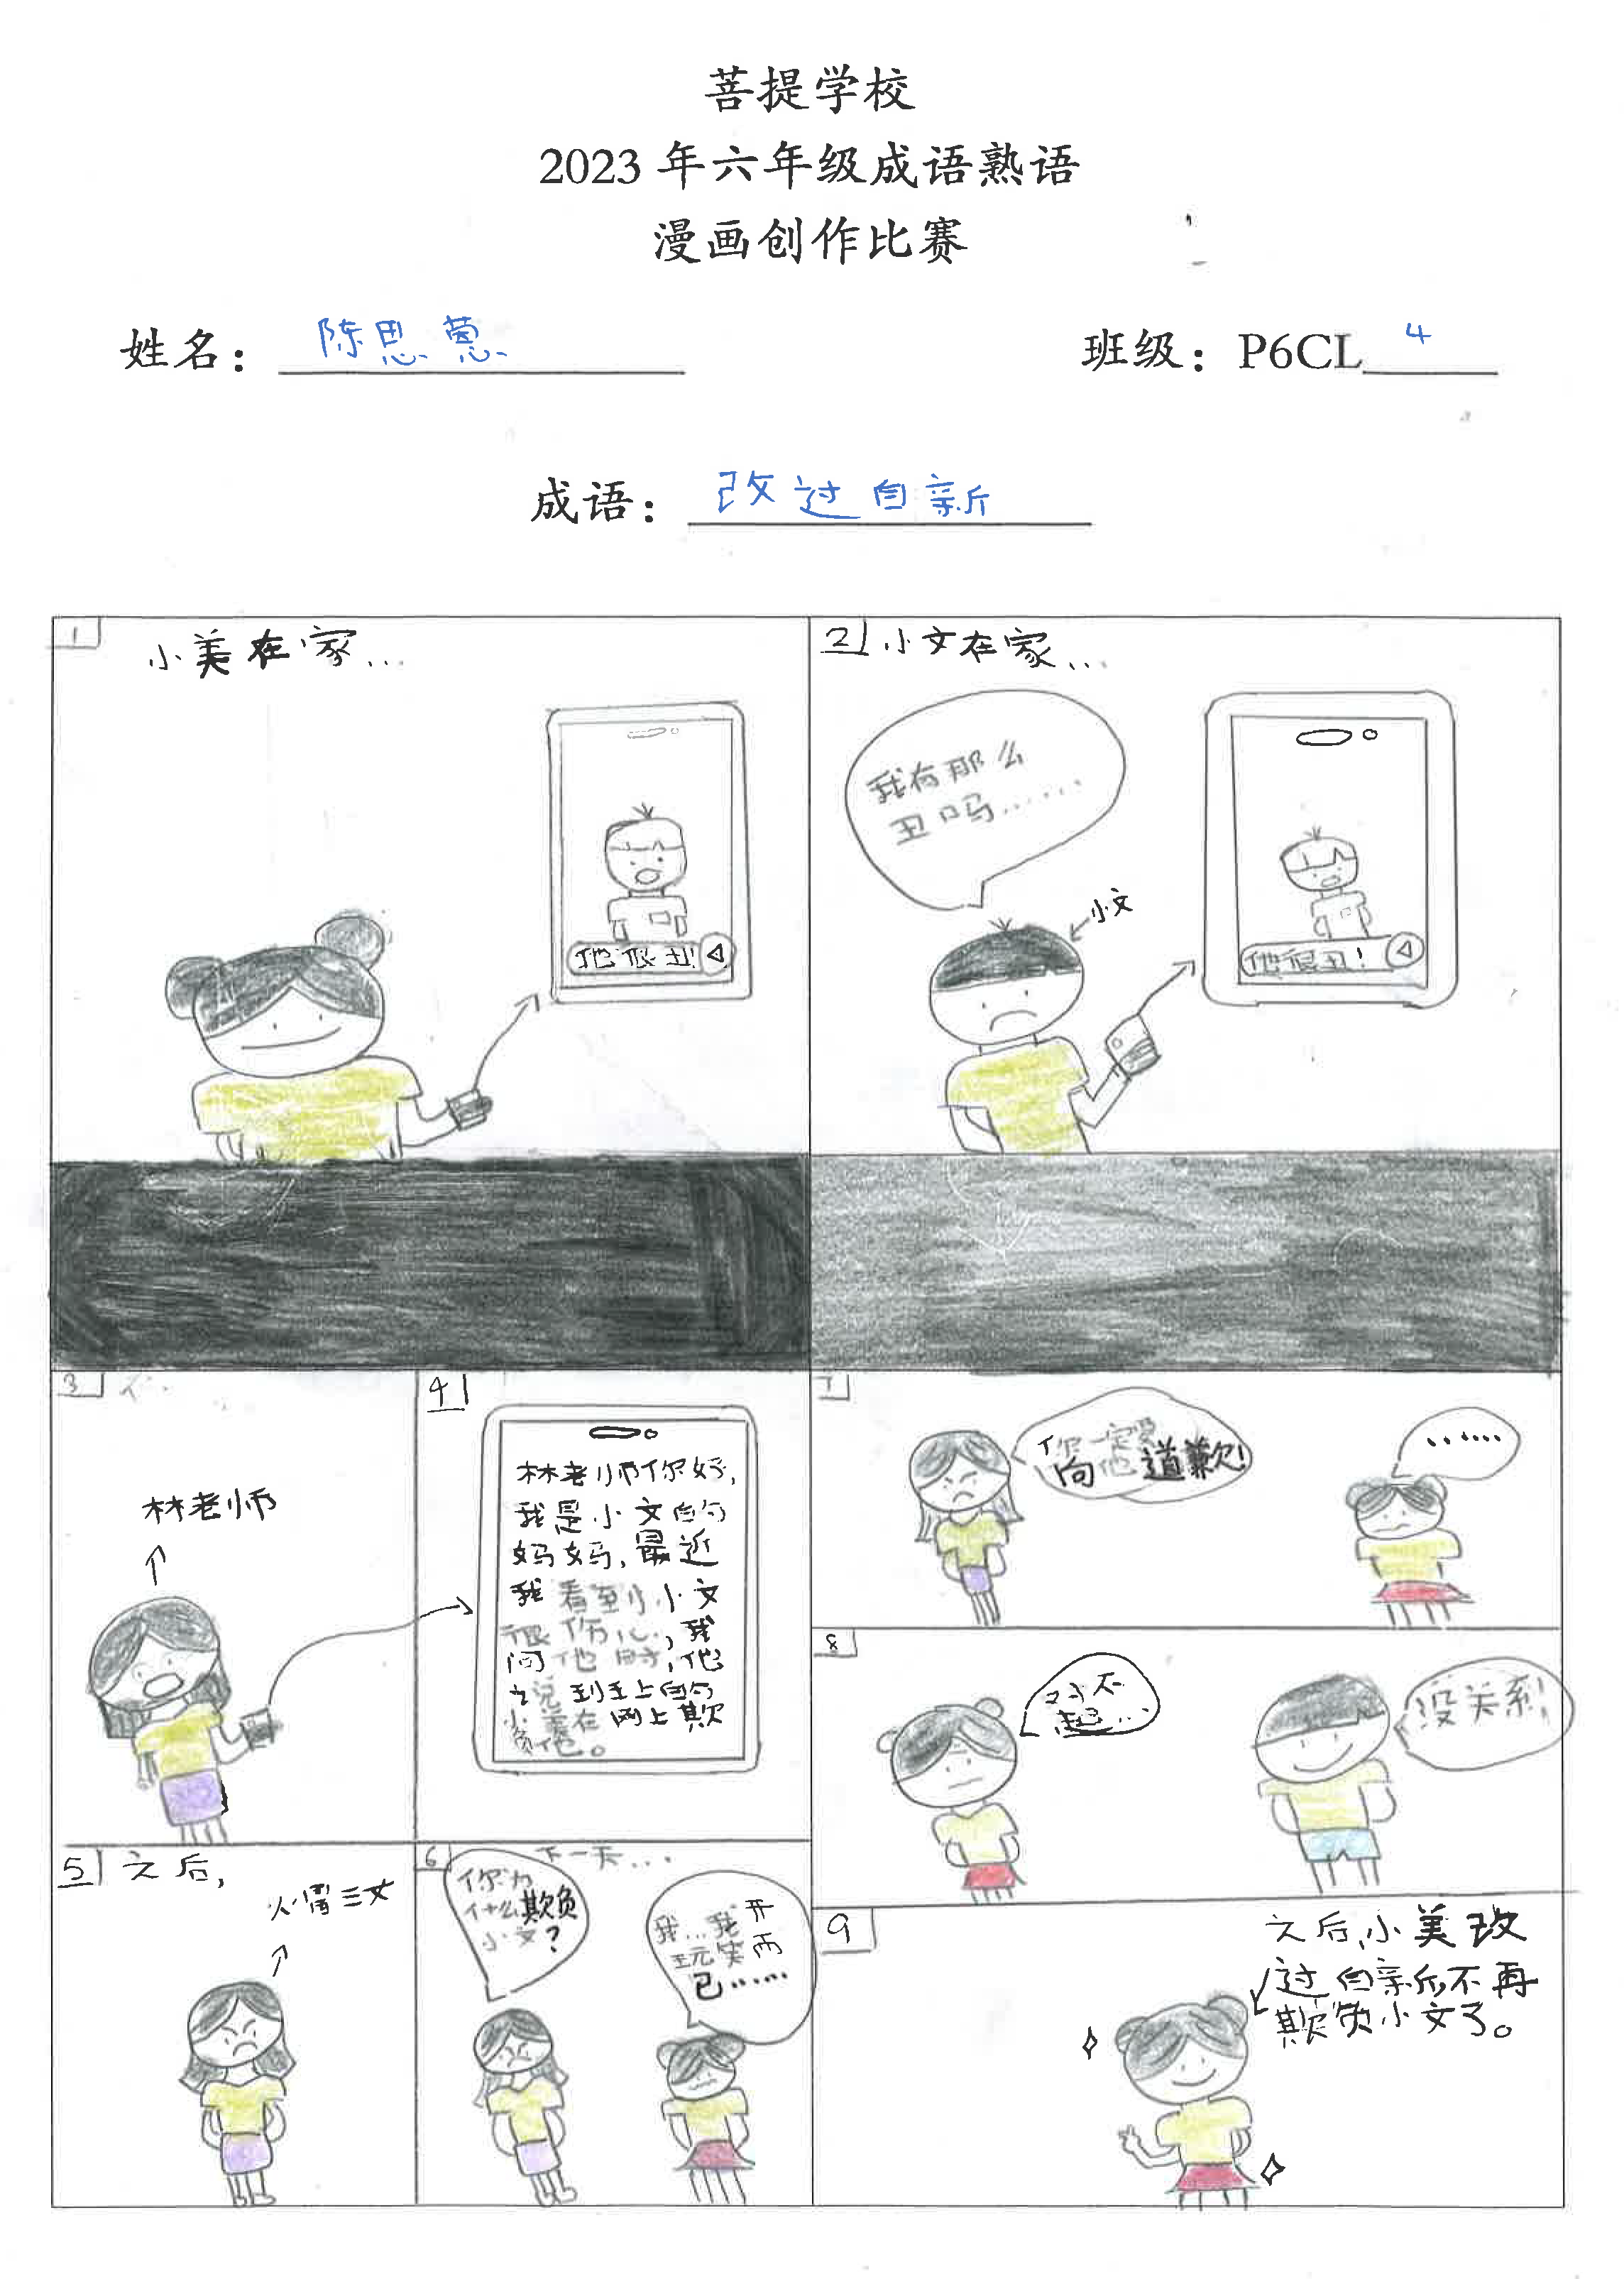 菩提学校
2023 年六年级成语熟语
漫画创作比赛
姓名：陈思蒽
班级：P6CL 4
成语：改过自新
1
小美在家...
他很丑!
2
小文在家...
我有那么
丑吗......
小文
他很丑!
3
林老师
4
林老师你好,
我是小文的
妈妈,最近
我看到小文
很伤心,我
问他时,他
说班上的
小美在网上欺
负他。
5
之后,
火冒三丈
6
下一天...
你为
什么欺负
小文?
我...我开
玩笑而
已......
7
你一定要
向他道歉!
......
8
对不
起...
没关系!
9
之后,小美改
过自新,不再
欺负小文了。